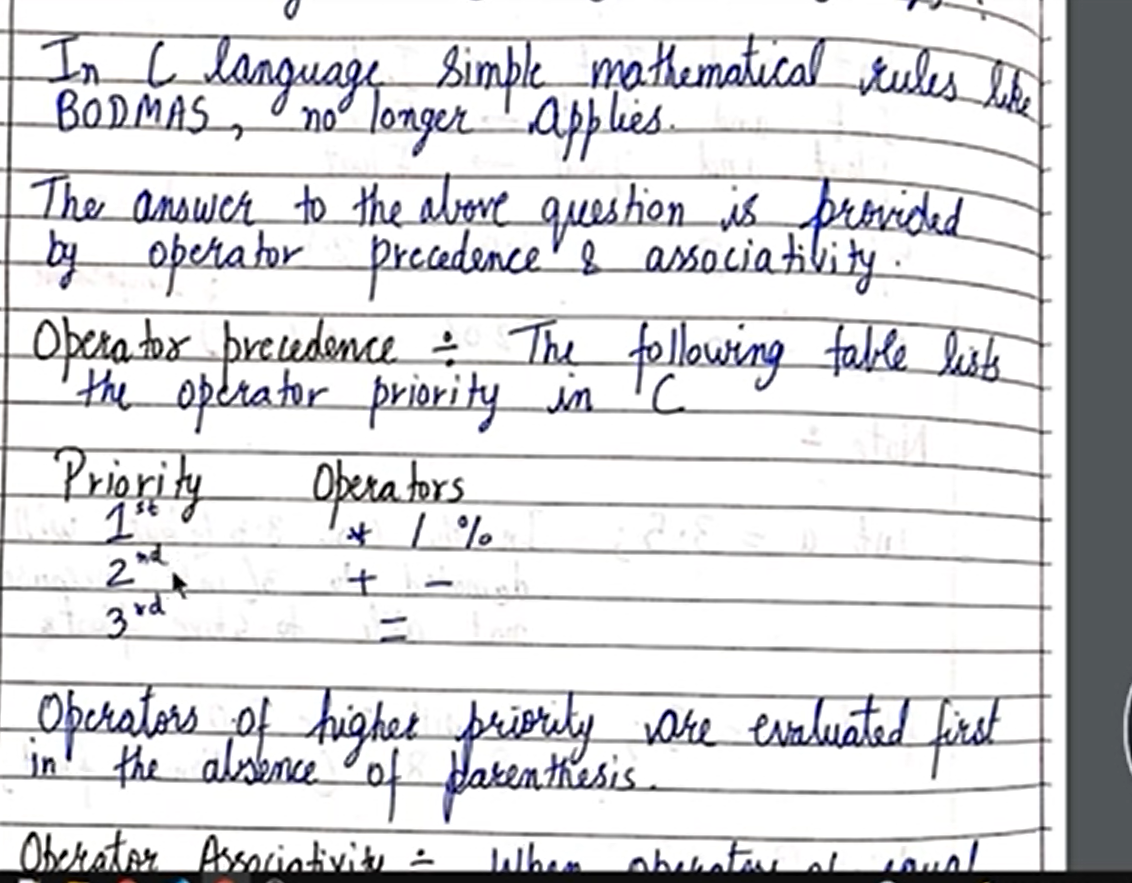 In C language simple mathematical rules like
BODMAS, no longer Applies.
The answer to the above question is provided
by operator precedence & associativity.
Operator precedence ÷ The following table lists
the operator priority in C
Priority Operators
1st * / %
2nd + -
3rd =
Operators of higher priority are evaluated first
in the absence of parenthesis.
Operator Associativity ÷ When operators of equal